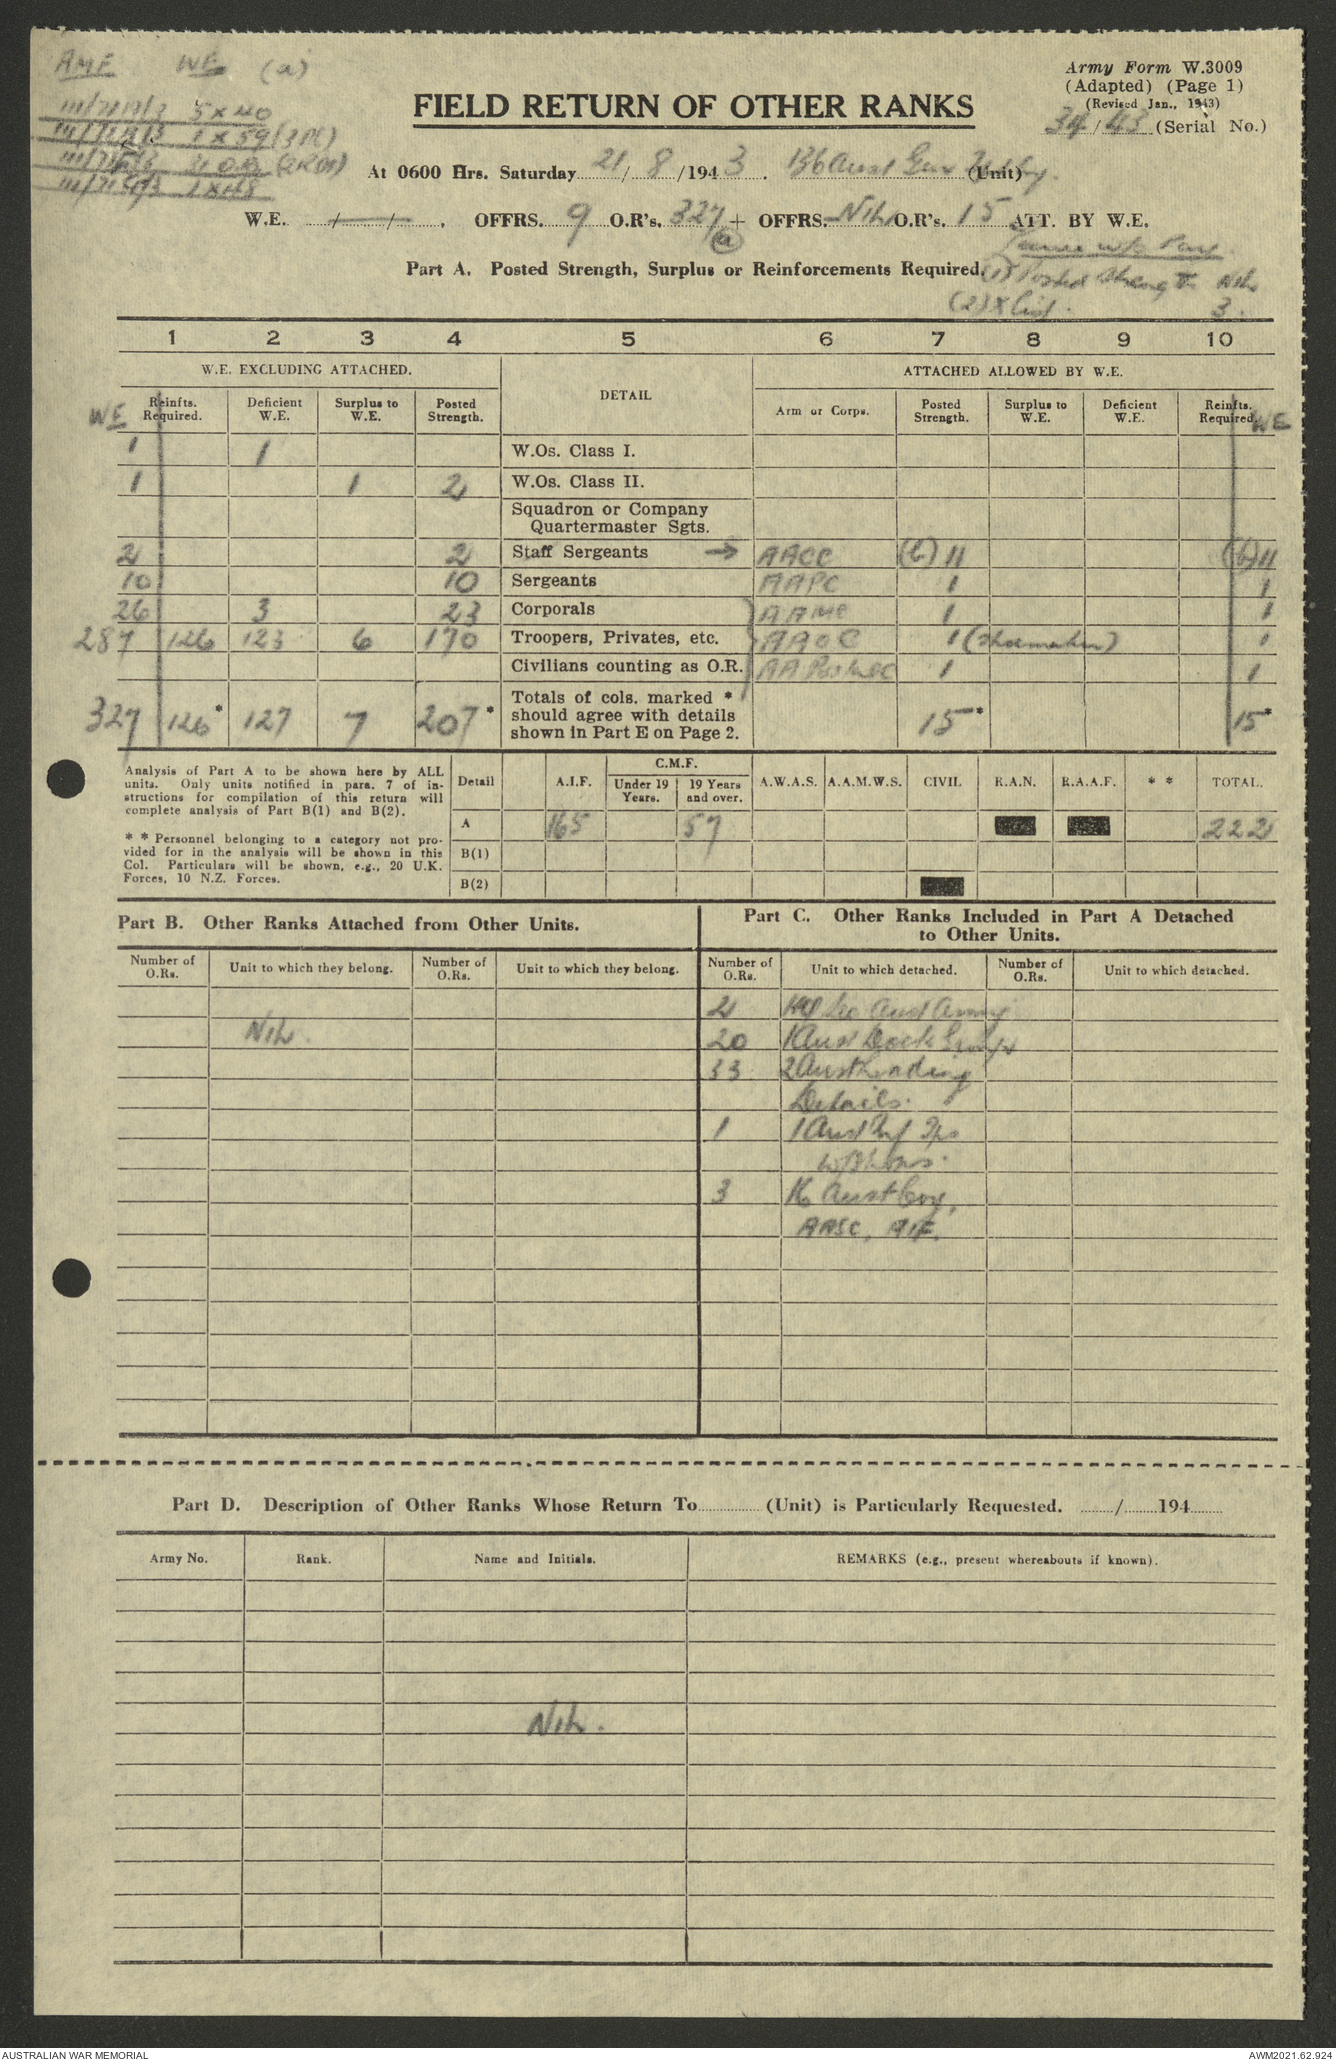 AMF WE (a)
111/7119/3 5 x 40
1 x 59 (3 Pl)
1 x 48
Army Form W.3009
(Adapted) (Page 1)
(Revised Jan., 1943)
34/43 (Serial No.)
FIELD RETURN OF OTHER RANKS
At 0600 Hrs. Saturday 21/8/1943. 136 Aust Gen Tpt Coy. (Unit)
W.E. / / . OFFRS. 9 O.R's. 327 + OFFRS. Nil O.R's. 15 ATT. BY W.E.
(a)
w/o Pay.
Part A. Posted Strength, Surplus or Reinforcements Required.
(1) Posted Strength Nil
(2) X List. 3.
1 2 3 4 5 6 7 8 9 10
W.E. EXCLUDING ATTACHED. DETAIL ATTACHED ALLOWED BY W.E.
WE Reinfts. Required. Deficient W.E. Surplus to W.E. Posted Strength. Arm or Corps. Posted Strength. Surplus to W.E. Deficient W.E. Reinfts. Required. WE
1 1 W.Os. Class I.
1 1 2 W.Os. Class II.
Squadron or Company
Quartermaster Sgts.
2 2 Staff Sergeants → AACC (b) 11 (b) 11
10 10 Sergeants AAPC 1 1
26 3 23 Corporals AAME 1 1
287 126 123 6 170 Troopers, Privates, etc. AAOC 1 (Shoemaker) 1
Civilians counting as O.R. AA Postal C 1 1
327 126* 127 7 207* Totals of cols. marked * should agree with details shown in Part E on Page 2. 15* 15*
Analysis of Part A to be shown here by ALL
units. Only units notified in para. 7 of in-
structions for compilation of this return will
complete analysis of Part B(1) and B(2).
* * Personnel belonging to a category not pro-
vided for in the analysis will be shown in this
Col. Particulars will be shown, e.g., 20 U.K.
Forces, 10 N.Z. Forces.
Detail A.I.F. C.M.F. Under 19 Years. 19 Years and over. A.W.A.S. A.A.M.W.S. CIVIL R.A.N. R.A.A.F. * * TOTAL.
A 165 57 222
B(1)
B(2)
Part B. Other Ranks Attached from Other Units.
Part C. Other Ranks Included in Part A Detached
to Other Units.
Number of O.Rs. Unit to which they belong. Number of O.Rs. Unit to which they belong. Number of O.Rs. Unit to which detached. Number of O.Rs. Unit to which detached.
Nil.
2 HQ Sec Aust Army
20 1 Aust Dock Group
33 2 Aust Landing
Details.
1 1 Aust Inf Tps
W/Shops.
3 16 Aust Coy,
AASC, AIF.
Part D. Description of Other Ranks Whose Return To (Unit) is Particularly Requested. / 194
Army No. Rank. Name and Initials. REMARKS (e.g., present whereabouts if known).
Nil.
AUSTRALIAN WAR MEMORIAL
AWM2021.62.924